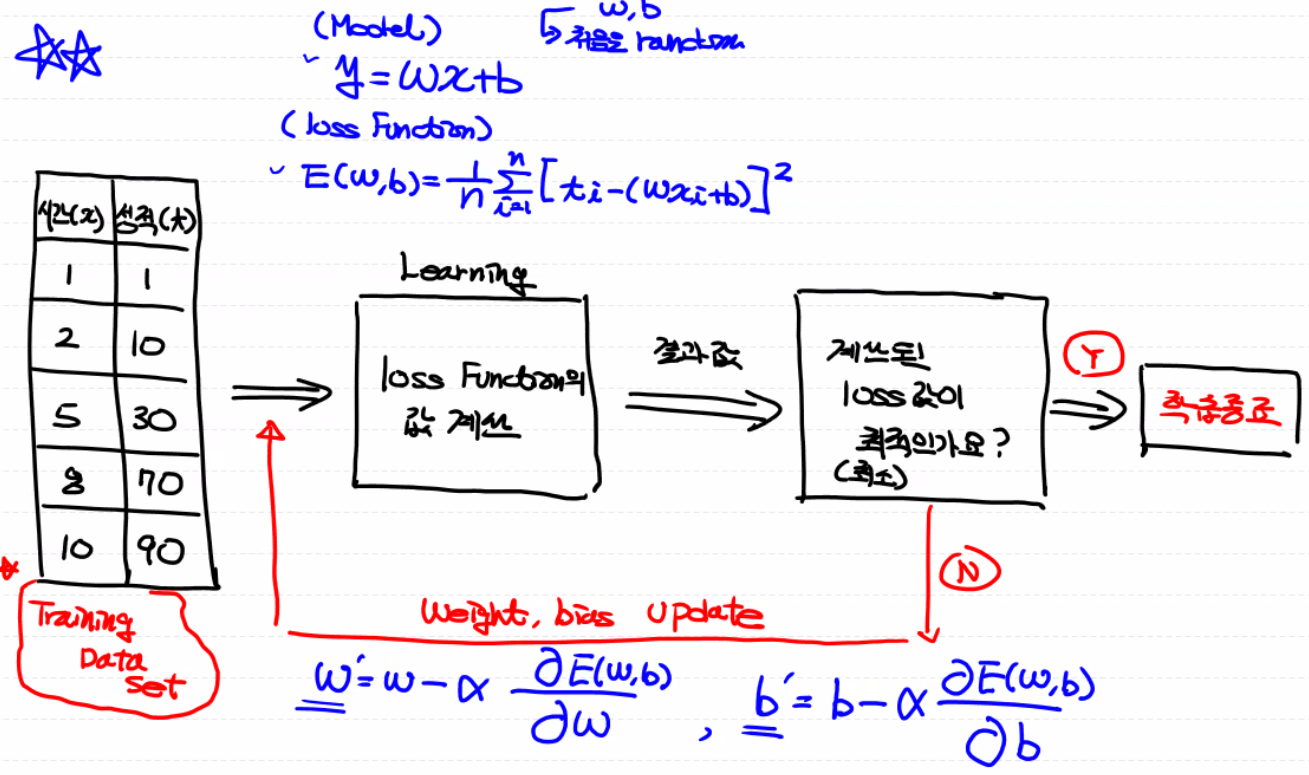 (Model)
w,b
처음은 random
y = wx+b
(loss Function)
E(w,b) = 1/n Σ(i=1→n) [ti-(wxi+b)]²
시간(x) 성적(t)
1 1
2 10
5 30
8 70
10 90
Training
Data
Set
Learning
loss Function의
값 계산
결과값
계산된
loss값이
최적인가요?
(최소)
Y
학습종료
N
Weight, bias update
w' = w - α ∂E(w,b)/∂w , b' = b - α ∂E(w,b)/∂b